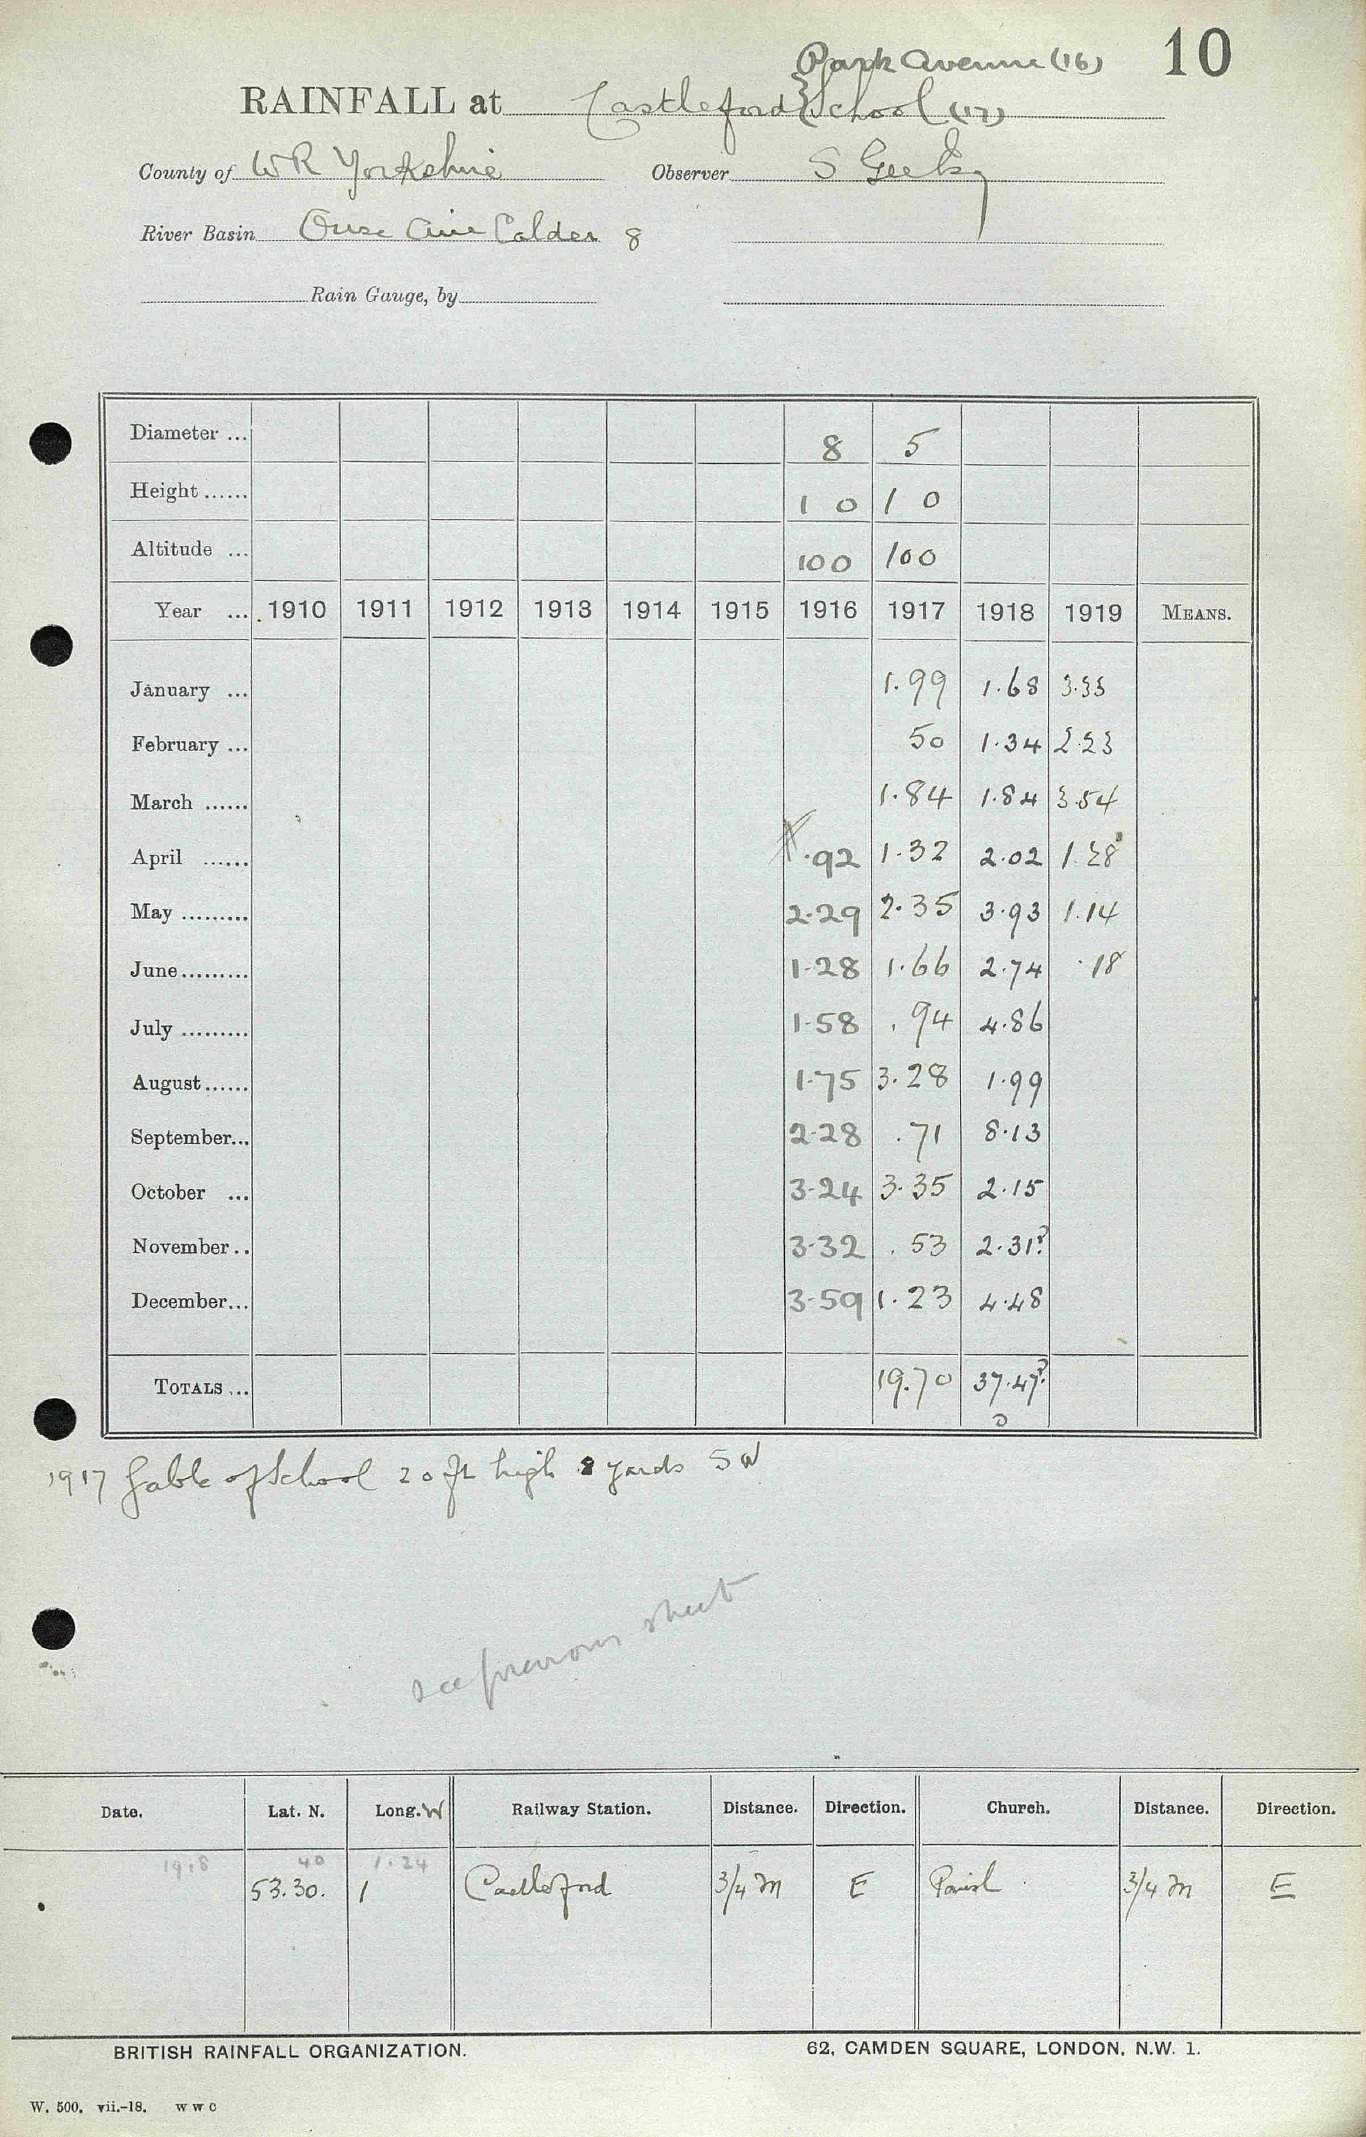 10
Park Avenue (16)
RAINFALL at Castleford { School (17)
County of WR Yorkshire Observer S
River Basin Ouse Aire Calder 8
Rain Gauge, by
Diameter ... 8 5
Height ...... 1 0 1 0
Altitude ... 100 100
Year ... 1910 1911 1912 1913 1914 1915 1916 1917 1918 1919 MEANS.
January ... 1.99 1.68 3.33
February ... 50 1.34 2.23
March ...... 1.84 1.84 3.54
April ...... .92 1.32 2.02 1.38
May ......... 2.29 2.35 3.93 1.14
June......... 1.28 1.66 2.74 .18
July ......... 1.58 .94 4.86
August...... 1.75 3.28 1.99
September... 2.28 .71 8.13
October ... 3.24 3.35 2.15
November.. 3.32 .53 2.31?
December... 3.59 1.23 4.48
TOTALS ... 19.70 37.47?
1917 Gable of School 20 ft high 8 yards SW
see previous sheet
Date. Lat. N. Long. W Railway Station. Distance. Direction. Church. Distance. Direction.
1918 40 1.24
53.30. 1 Castleford 3/4 m E Parish 3/4 m E
BRITISH RAINFALL ORGANIZATION. 62, CAMDEN SQUARE, LONDON, N.W. 1.
W. 500. vii.-18. W W C